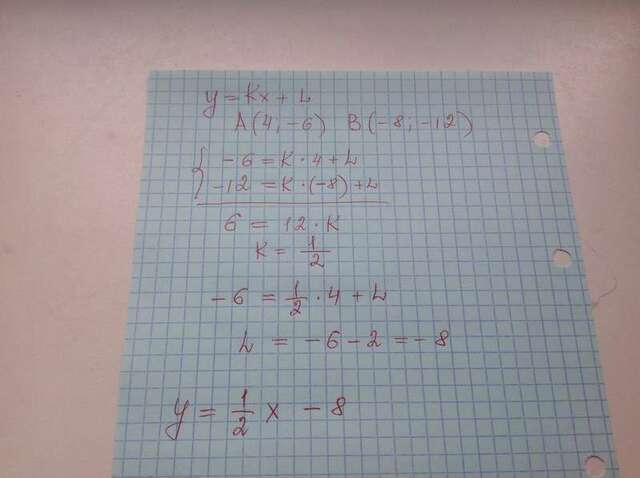 y = Kx + L
A(4; -6) B(-8; -12)
{ -6 = K · 4 + L
-12 = K · (-8) + L
6 = 12 · K
K = 1/2
-6 = 1/2 · 4 + L
L = -6 - 2 = -8
y = 1/2 x - 8